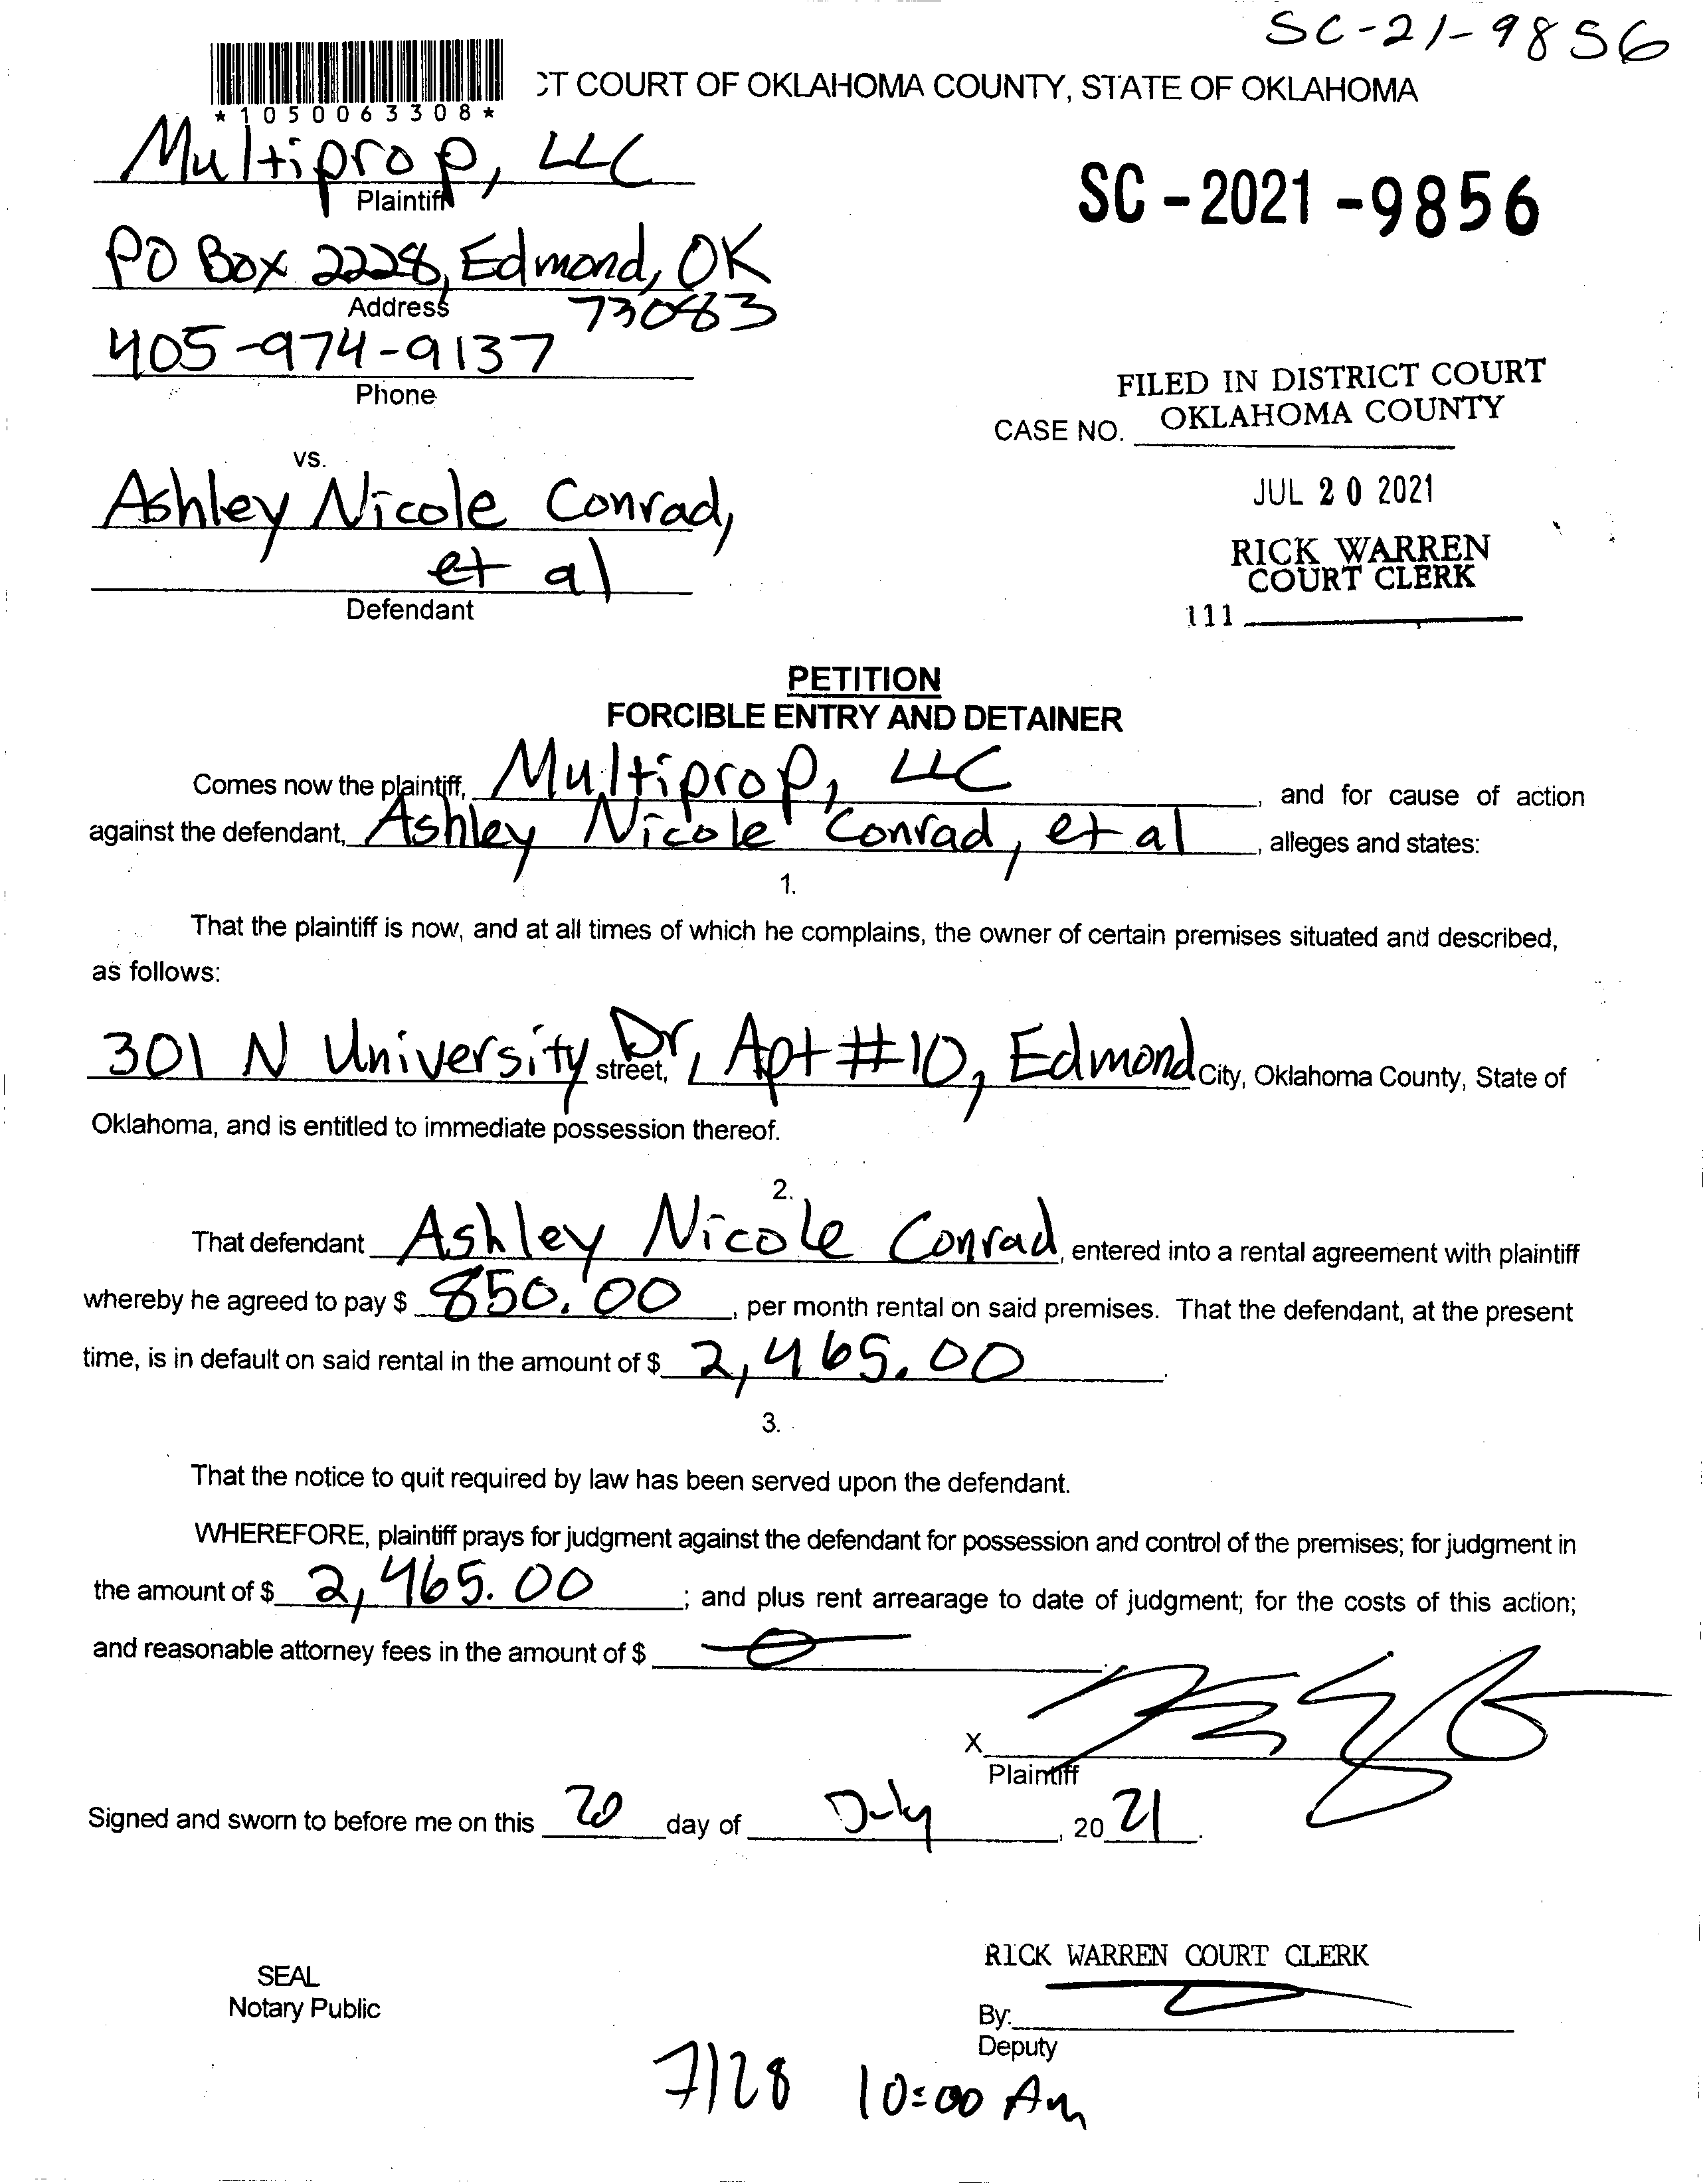 SC-21-9856
*1050063308*
CT COURT OF OKLAHOMA COUNTY, STATE OF OKLAHOMA
Multiprop, LLC
Plaintiff
SC-2021-9856
PO Box 2228, Edmond, OK
Address
73083
405-974-9137
Phone
FILED IN DISTRICT COURT
OKLAHOMA COUNTY
CASE NO.
vs.
JUL 20 2021
Ashley Nicole Conrad,
et al
Defendant
RICK WARREN
COURT CLERK
111
PETITION
FORCIBLE ENTRY AND DETAINER
Comes now the plaintiff, Multiprop, LLC, and for cause of action
against the defendant, Ashley Nicole Conrad, et al, alleges and states:
1.
That the plaintiff is now, and at all times of which he complains, the owner of certain premises situated and described,
as follows:
301 N University Dr, Apt #10, Edmond
street, City, Oklahoma County, State of
Oklahoma, and is entitled to immediate possession thereof.
2.
That defendant Ashley Nicole Conrad, entered into a rental agreement with plaintiff
whereby he agreed to pay $ 850.00, per month rental on said premises. That the defendant, at the present
time, is in default on said rental in the amount of $ 2,465.00.
3.
That the notice to quit required by law has been served upon the defendant.
WHEREFORE, plaintiff prays for judgment against the defendant for possession and control of the premises; for judgment in
the amount of $ 2,465.00; and plus rent arrearage to date of judgment; for the costs of this action;
and reasonable attorney fees in the amount of $ 0.
X
Plaintiff
Signed and sworn to before me on this 20 day of July, 2021.
RICK WARREN COURT CLERK
SEAL
Notary Public
By:
Deputy
7/28 10:00 Am